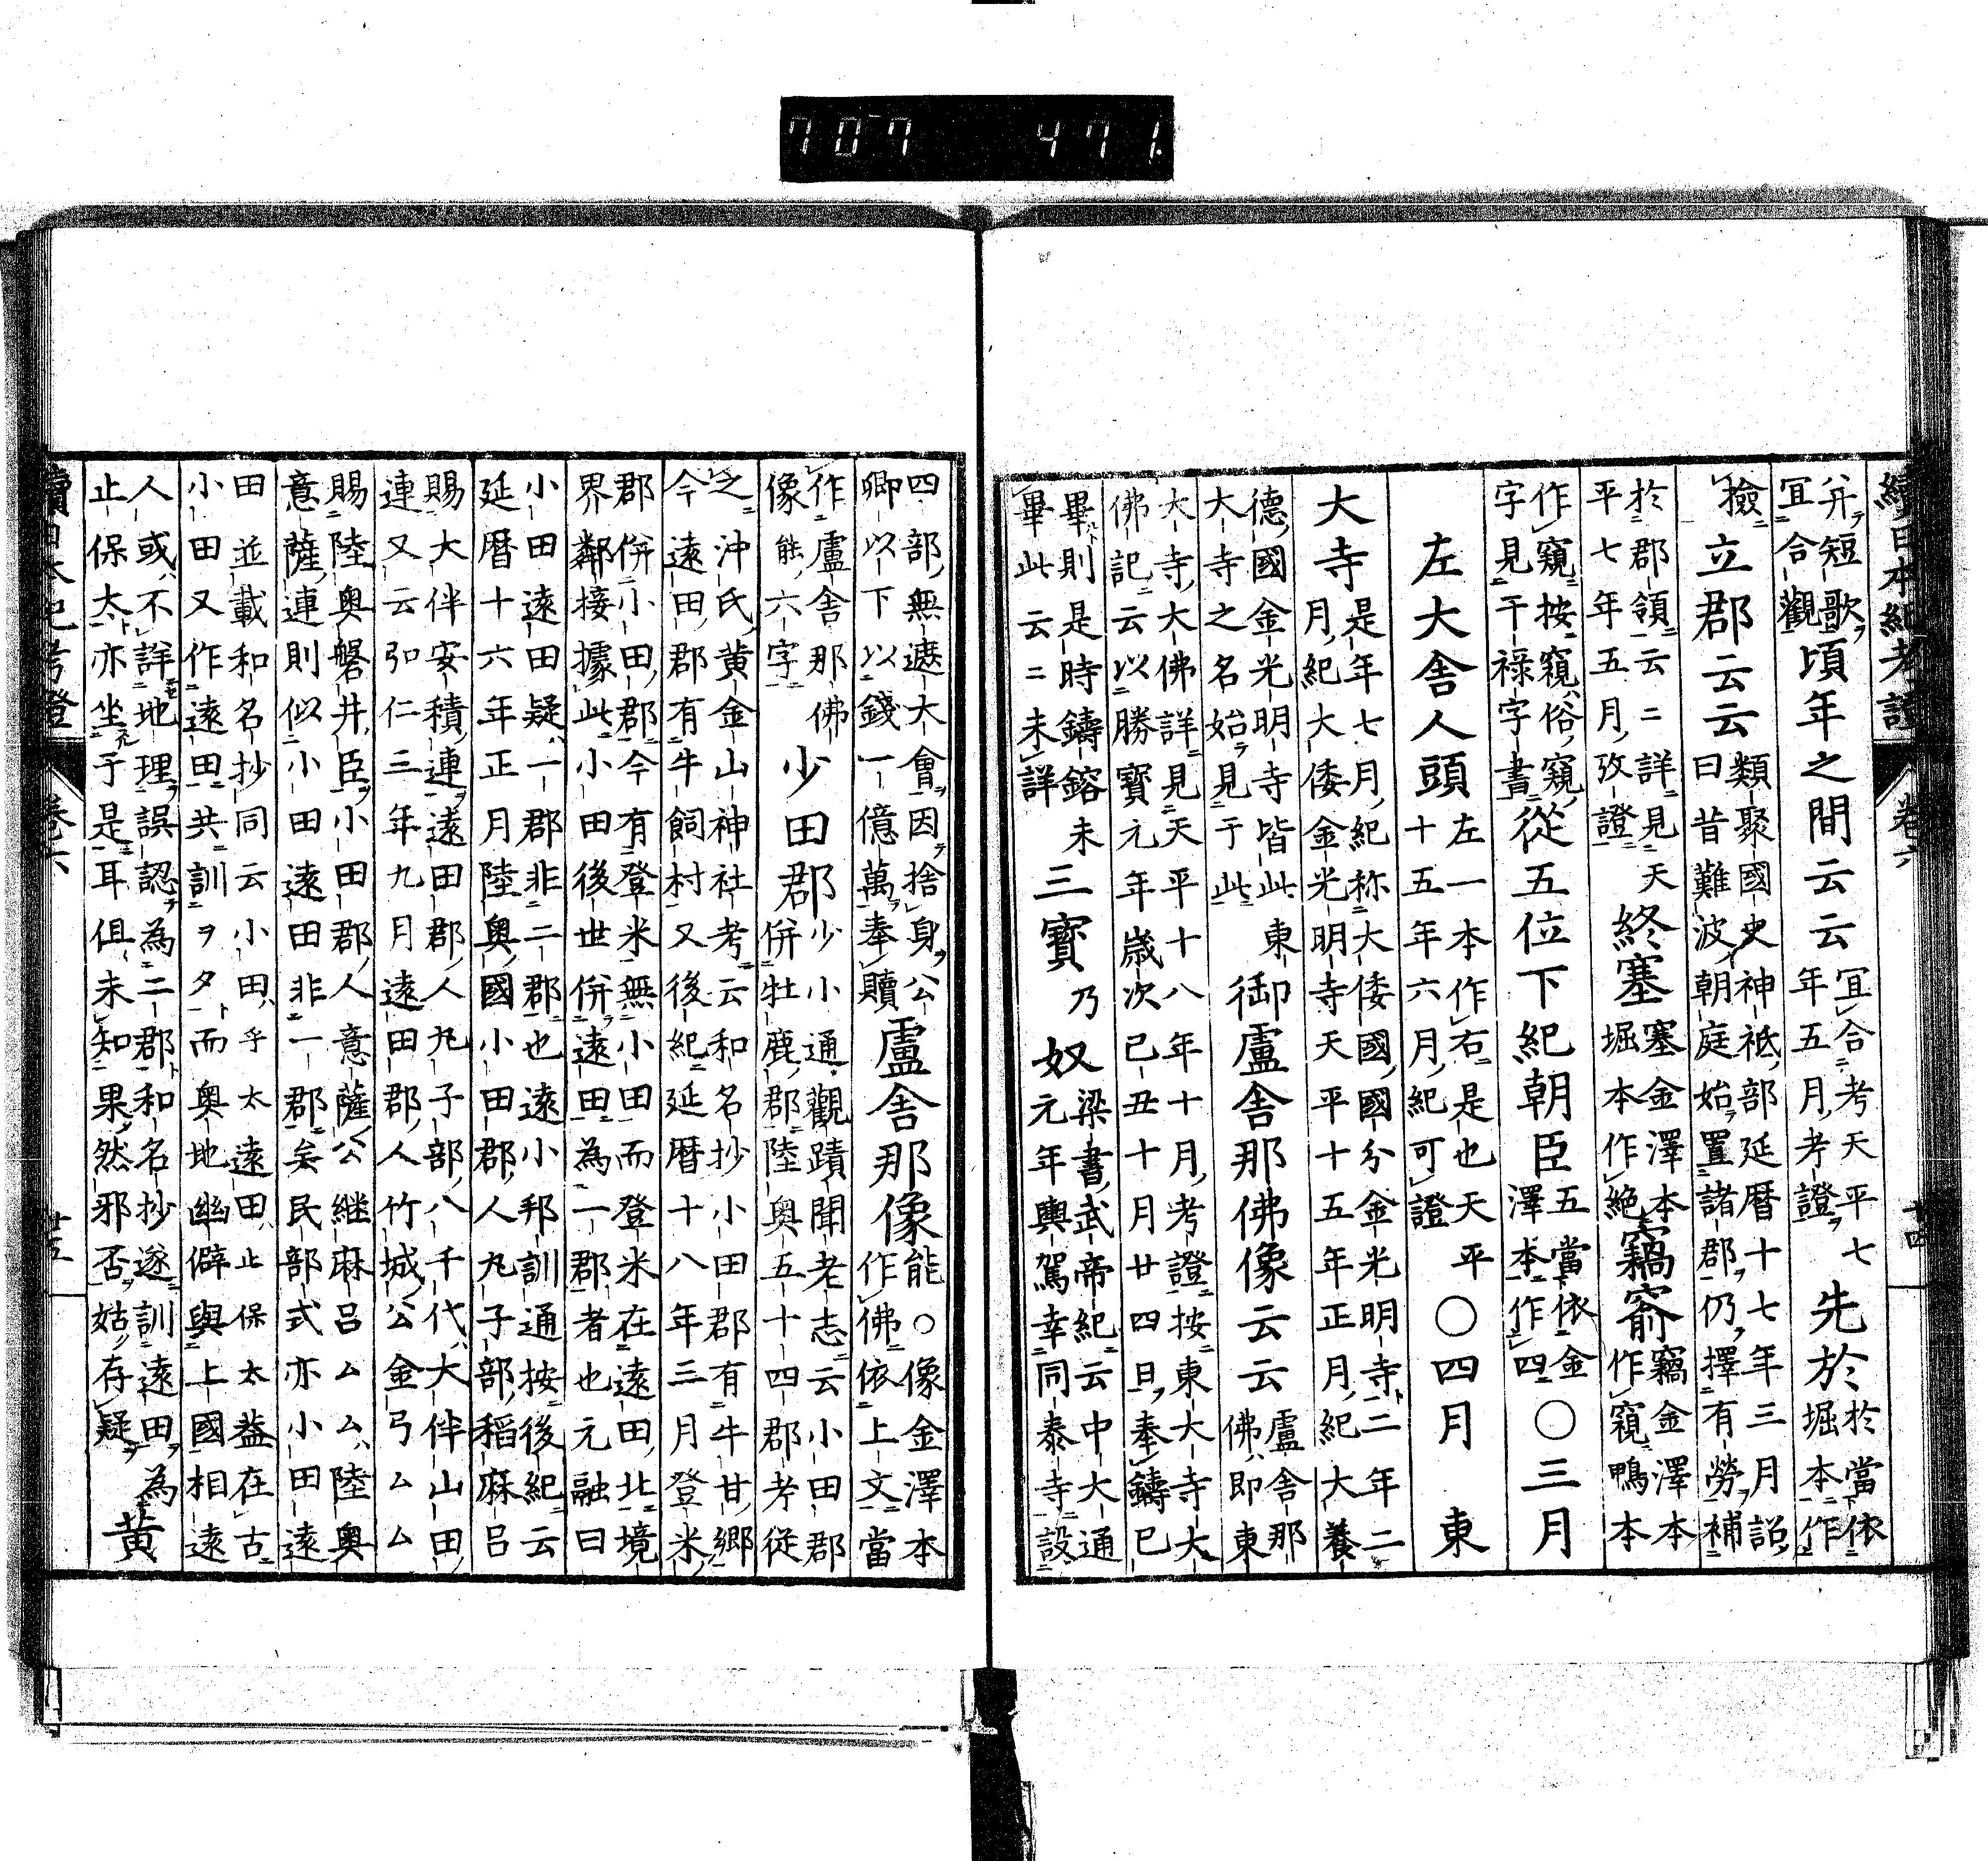 續日本紀考證 卷六 十四
并短歌
宜合觀
頃年之間云云
宜合考天平七
年五月考證
先於
於當依
堀本作
撿
立郡云云
類聚國史神祇部延暦十七年三月詔
曰昔難波朝庭始置諸郡仍擇有勞補
於郡領云二詳見天
平七年五月攷證
終塞
塞金澤本
堀本作絶
竊窬
竊金澤本
作窺鴨本
作窺按窺俗窺
字見干禄字書
從五位下紀朝臣
五當依金
澤本作四
〇三月
左大舍人頭
左一本作右是也天平
十五年六月紀可證
〇四月 東
大寺
是年七月紀称大倭國國分金光明寺二年二
月紀大倭金光明寺天平十五年正月紀大養
德國金光明寺皆此東
大寺之名始見于此
御盧舍那佛像云云
盧舍那
佛即東
大寺大佛詳見天平十八年十月考證按東大寺大
佛記云以勝寶元年歲次己丑十月廿四日奉鑄已
畢則是時鑄鎔未
畢此云二未詳
三寶乃奴
梁書武帝紀云中大通
元年輿駕幸同泰寺設
四部無遮大會因捨身公
卿以下以錢一億萬奉贖
盧舍那像
能〇像金澤本
作佛依上文當
作盧舍那佛
像能六字
少田郡
少小通觀蹟聞老志云小田郡
併牡鹿郡陸奥五十四郡考從
之沖氏黄金山神社考云和名抄小田郡有牛甘郷
今遠田郡有牛飼村又後紀延暦十八年三月登米
郡併小田郡今有登米無小田而登米在遠田北境
界鄰接據此小田後世併遠田為一郡者也元融曰
小田遠田疑一郡非二郡也遠小邦訓通按後紀云
延暦十六年正月陸奥國小田郡人丸子部稻麻呂
賜大伴安積連遠田郡人丸子部八千代大伴山田
連又云弘仁三年九月遠田郡人竹城公金弓ムム
賜陸奥磐井臣小田郡人意薩公継麻呂ムム陸奥
意薩連則似小田遠田非一郡矣民部式亦小田遠
田並載和名抄同云小田乎太遠田止保太蓋在古
小田又作遠田共訓ヲタ而奥地幽僻與上國相遠
人或不詳地理誤認為二郡和名抄遂訓遠田為
止保太亦坐于是耳俱未知果然邪否姑存疑
黄
續日本紀考證 卷六 廿五